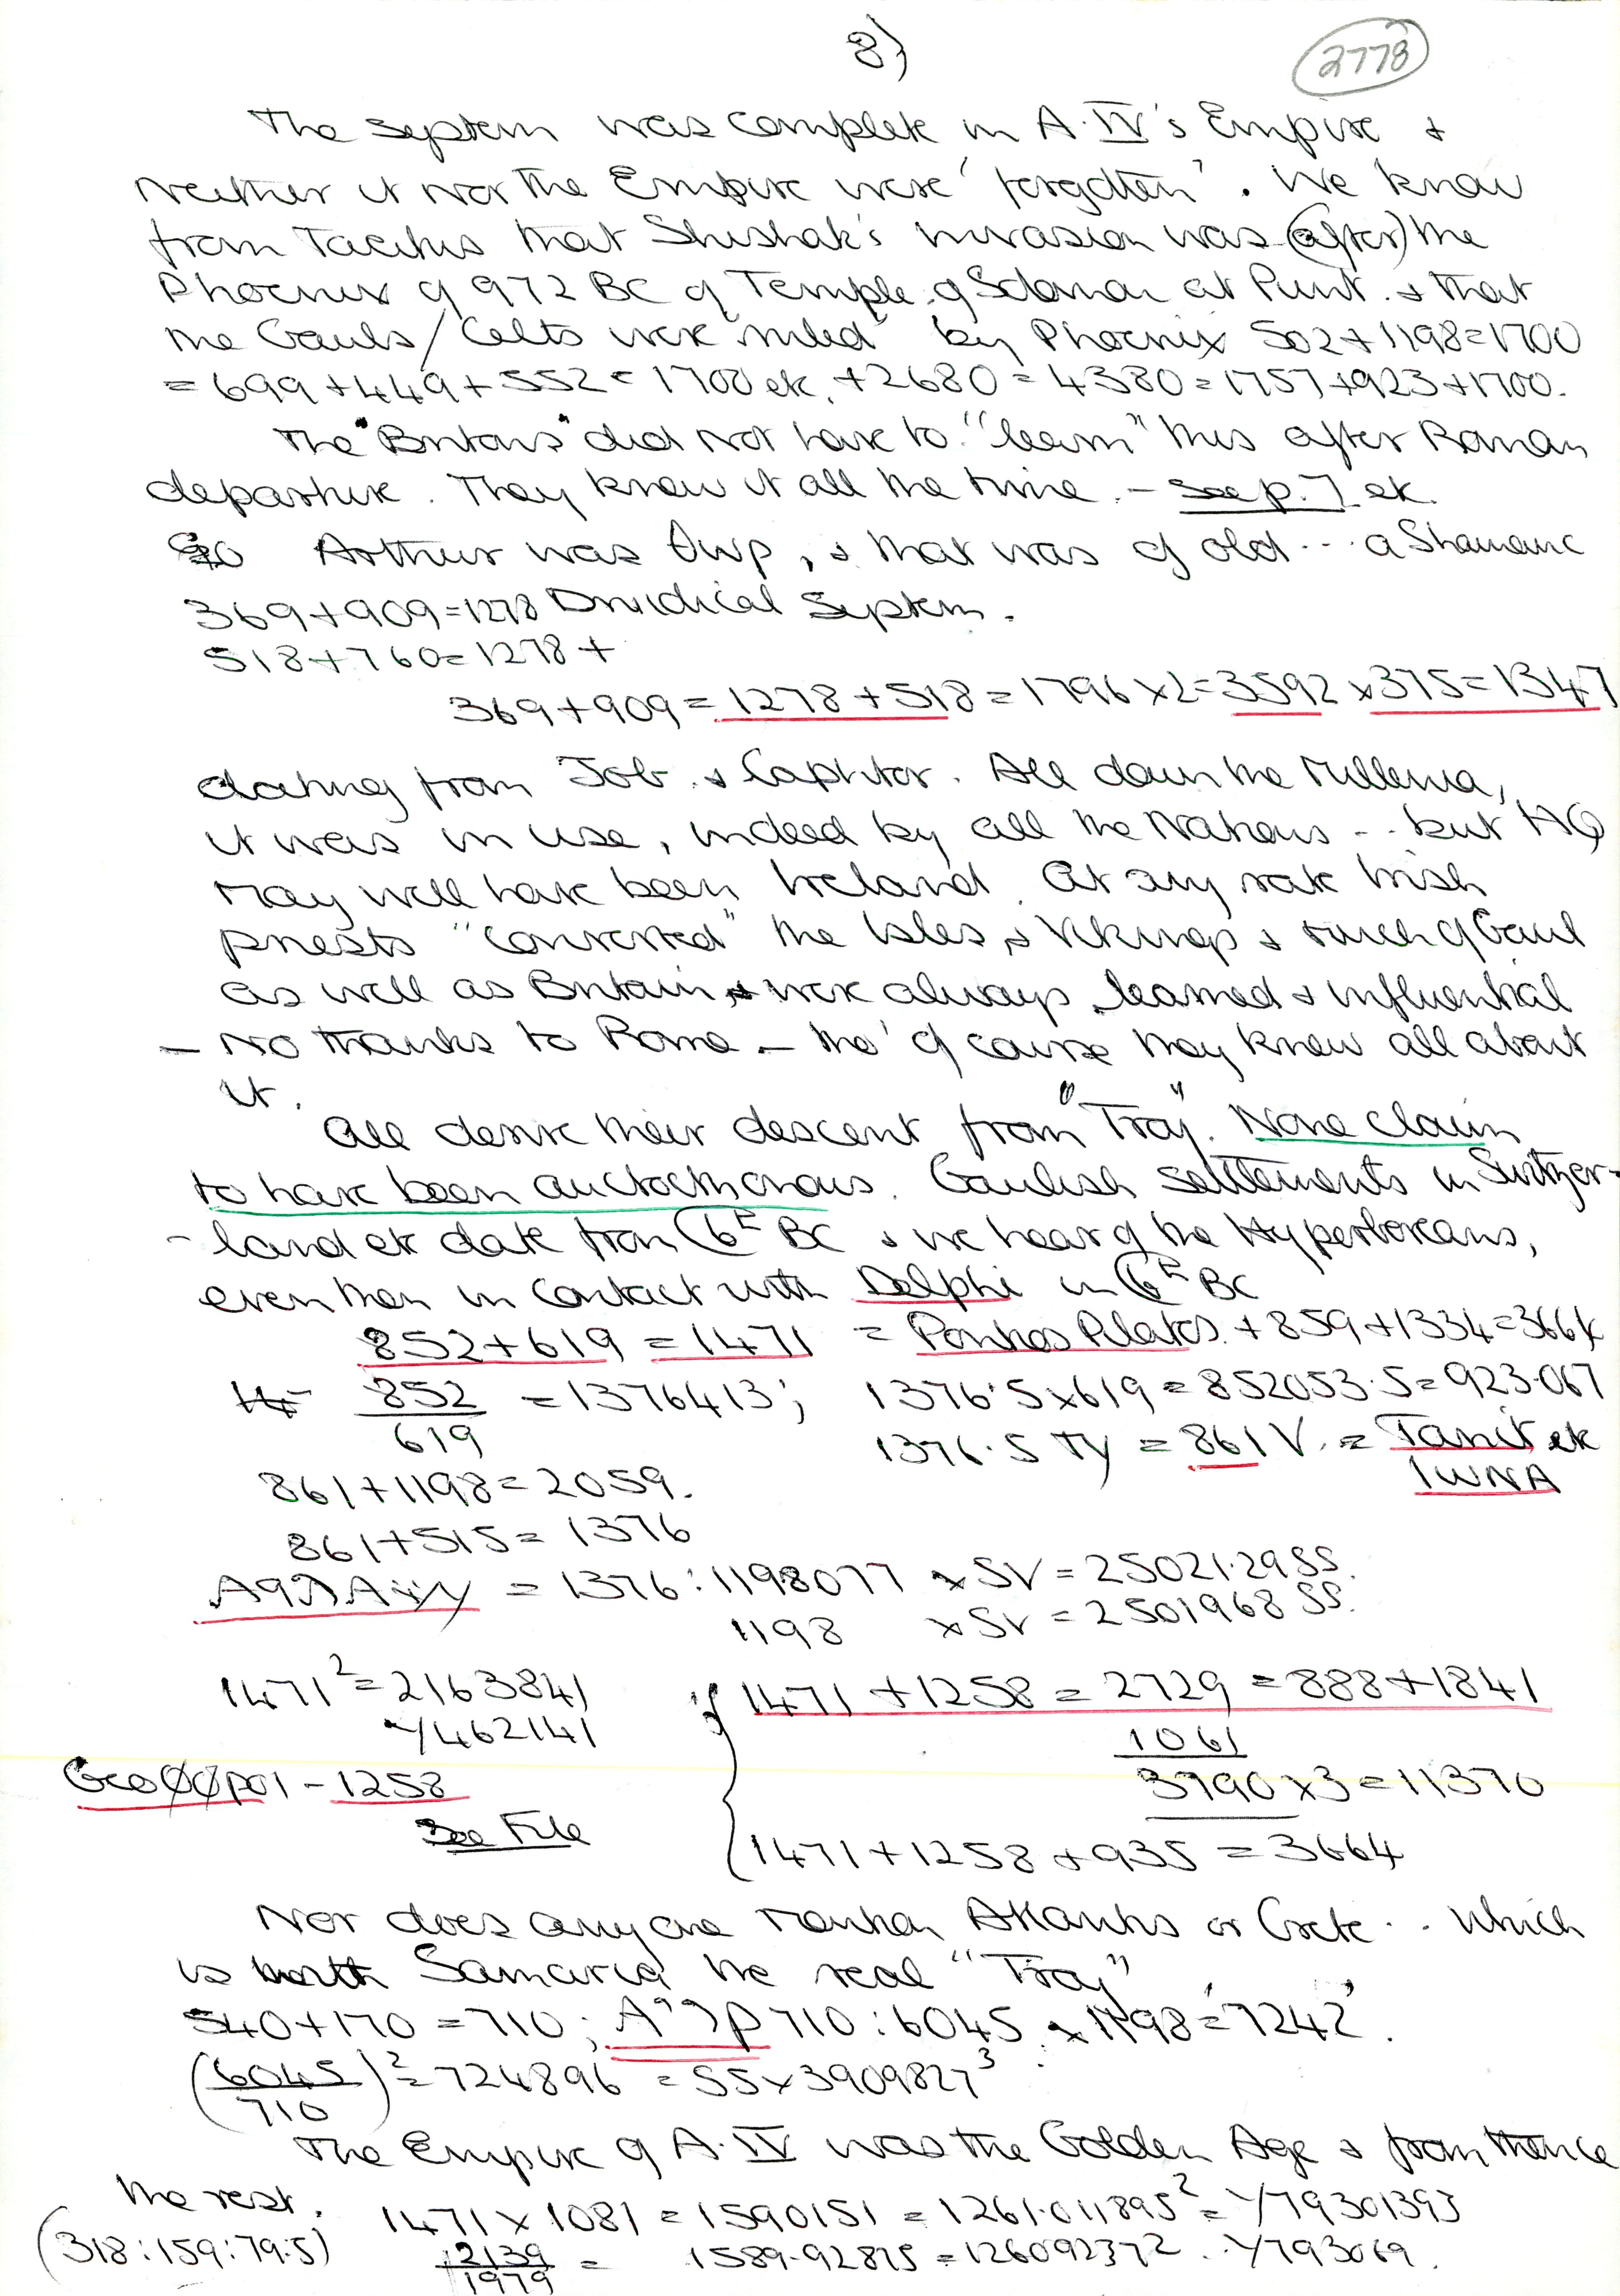 8)
2778
The system was complete in A.IV's Empire &
neither it nor the Empire were 'forgotten'. We know
from Tacitus that Shishak's invasion was (after) the
Phoenix of 972 BC of Temple of Solomon at Punt. & that
the Gauls/Celts were "ruled" by Phoenix 502+1198=1700
=699+449+552=1700 etc. +2680=4380=1757+923+1700.
The "Britons" did not have to "learn" this after Roman
departure. They knew it all the time. - See p.7 etc.
So Arthur was , & that was of old ... a Shamanic
369+909=1278 Druidical System.
518+760=1278+
369+909=1278+518=1796×2=3592×375=1347
dating from Job & Caphtor. All down the Millenia,
it was in use, indeed by all the Nations .. but HQ
may well have been Ireland. At any rate Irish
priests "converted" the Isles, & Vikings & much of Gaul
as well as Britain, & were always learned & influential
- no thanks to Rome - tho' of course they knew all about
it.
All derive their descent from "Troy". None claim
to have been auctocthonous. Gaulish settlements in Switzer-
-land etc date from 6th BC & we hear of the Hyperboreans,
even then in contact with Delphi in 6th BC
852+619=1471 = Pontios Pilatos. +859+1334=3664
852/619 =1376413; 1376.5×619=852053.5=923.067
1376.5 TY = 861 V. = Tanit etc
861+1198=2059. IWNA
861+515=1376
= 1376:1198077 ×SV=25021.29 SS.
1198 ×SV=2501968 SS.
1471²=2163841 if 1471+1258=2729=888+1841
√462141 1061
1258 3790×3=11370
See File
1471+1258+935=3664
Nor does anyone mention Atlantis or Crete .. which
is Samaria the real "Troy"
540+170=710; 710:6045 ×1198=7242.
(6045/710)²=724896=SS×3909827³
The Empire of A.IV was the Golden Age & from thence
the rest. 1471×1081=1590151=1261.011895²=√79301393
(318:159:79.5) 2139/1979 = 1589.92875=126092372. √793069.